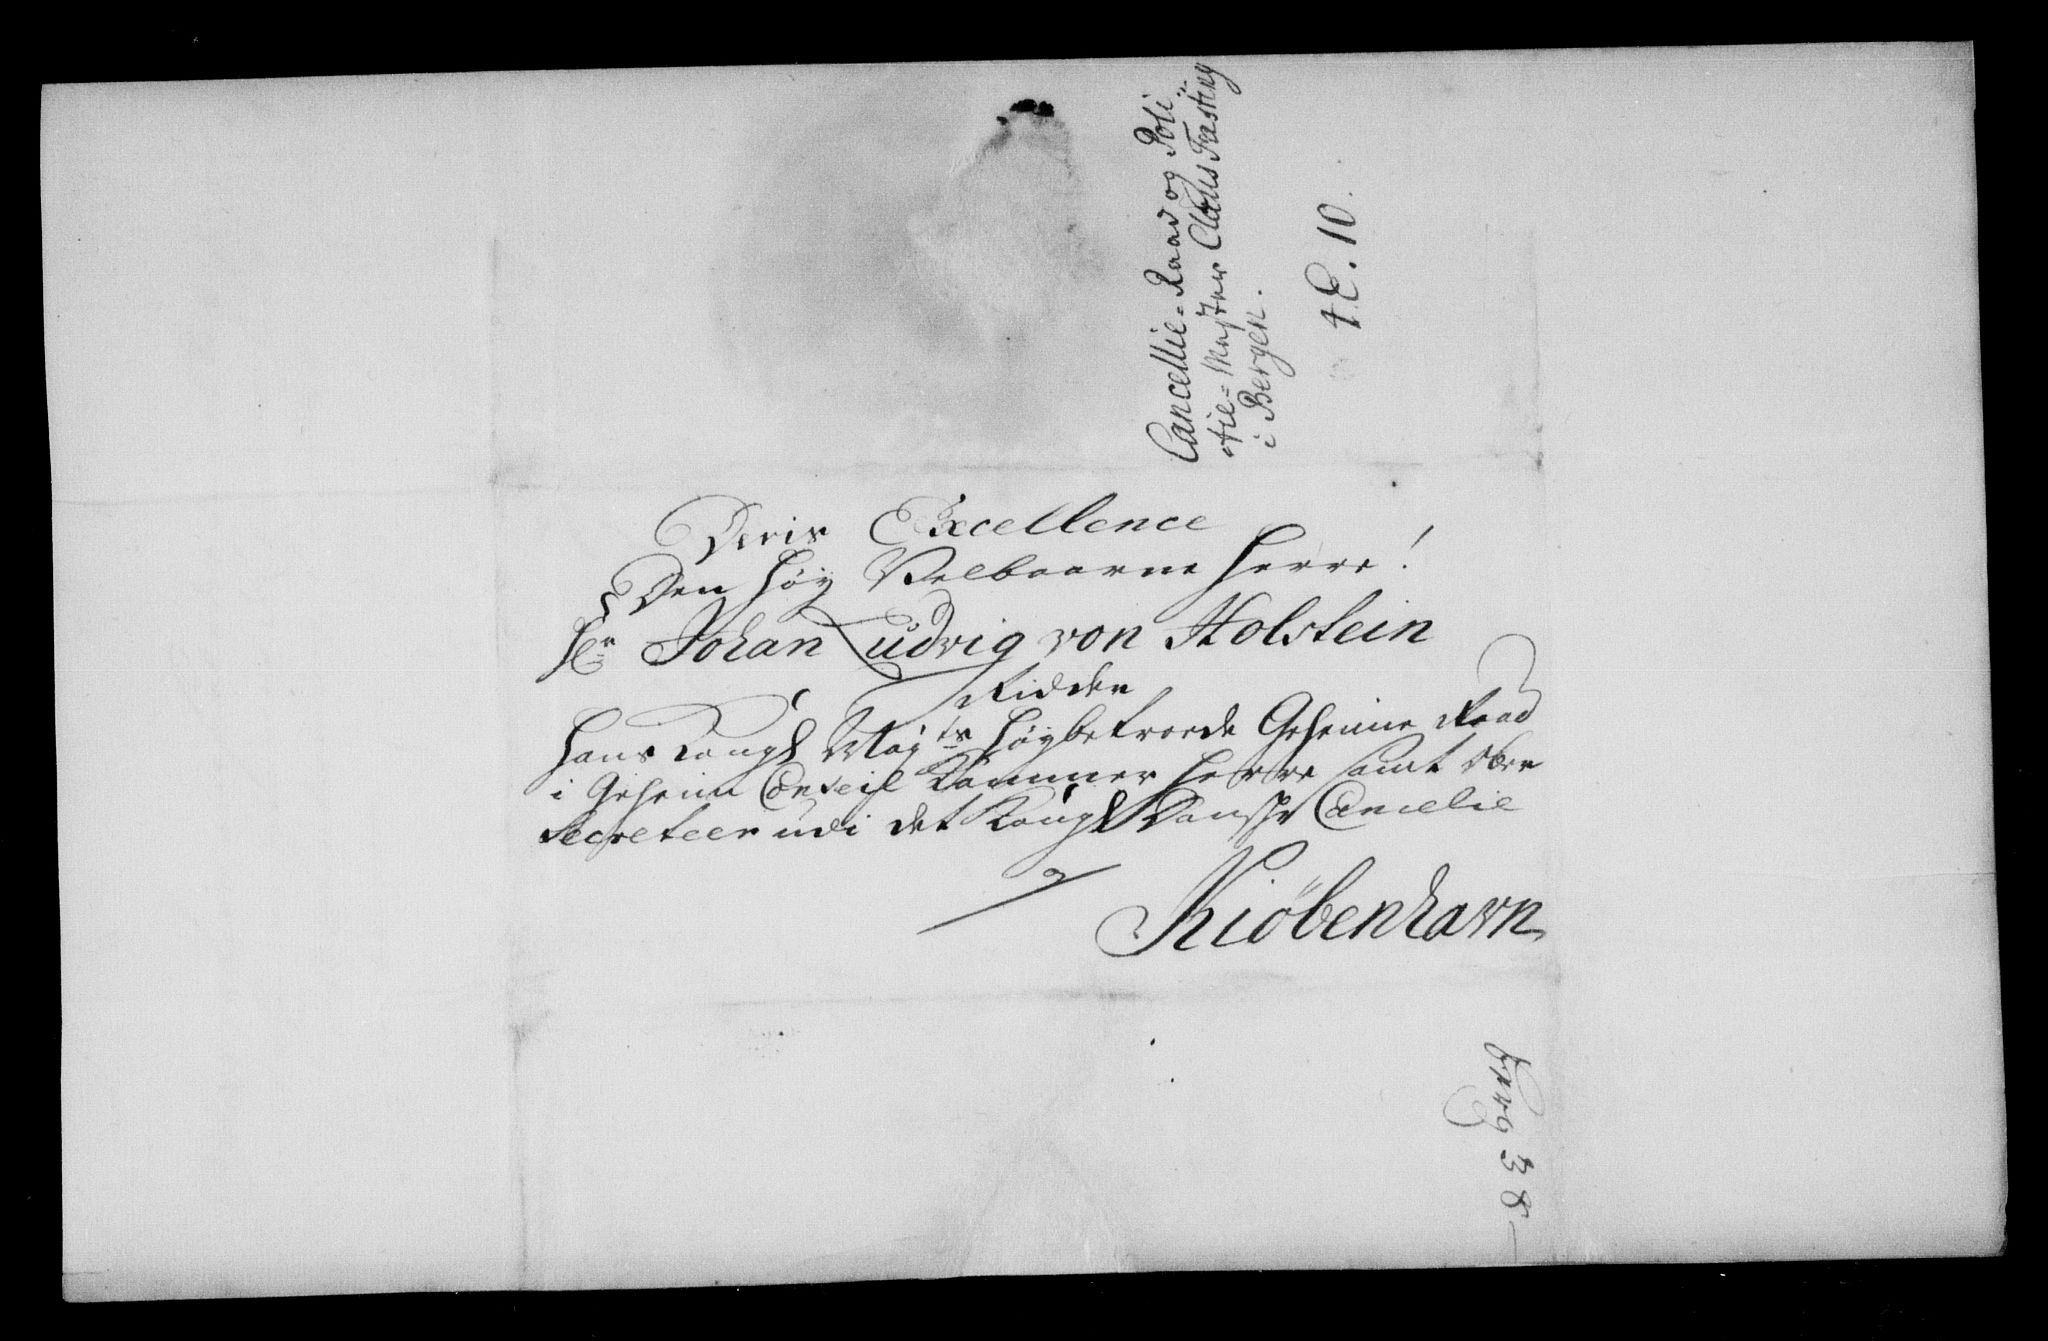 Cancellie-Raad og Poli-
tie-Mester Claus Fasting
i Bergen.
t E. 10.
Deris Excellence
Den Høy Velbaarne Herre!
Hr Johan Ludvig von Holstein
Ridder
Hans Kongl Mayts Høybetroede Geheime Raad
i Geheime Conseil Kammer Herre samt Ober
Secreteer udi det Kongl Danske Cancelie
Kiöbenhavn